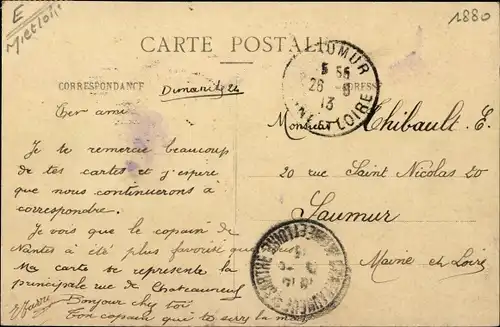 E
1880
CARTE POSTALE
CORRESPONDANCE
ADRESSE
Dimanche 24
SAUMUR
5 56
26 - 8
13
ET LOIRE
Cher ami
Je te remercie beaucoup
de tes cartes et j'espère
que nous continuerons à
correspondre.
Je vois que le copain de
Nantes a été plus favorisé que
Ma carte te représente la
principale rue de Chateauneuf
Bonjour chez toi
Ton copain que te serre la main
Monsieur Thibault. E.
20 rue Saint Nicolas 20
Saumur
Maine et Loire
CHATEAUNEUF S SARTHE